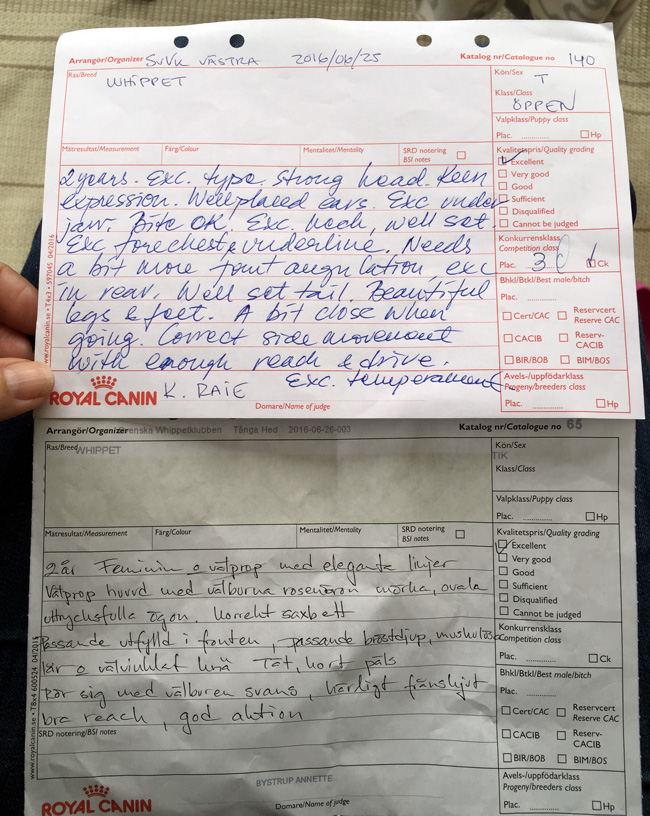 Arrangör/Organizer SVVK VÄSTRA 2016/06/25 Katalog nr/Catalogue no 140
Ras/Breed WHIPPET
Kön/Sex T
Klass/Class ÖPPEN
Valpklass/Puppy class
Plac. .............. Hp
Mätresultat/Measurement Färg/Colour Mentalitet/Mentality SRD notering BSI notes
Kvalitetspris/Quality grading
Excellent
Very good
Good
Sufficient
Disqualified
Cannot be judged
Konkurrensklass
Competition class
Plac. 3 Ck
Bhkl/Btkl/Best male/bitch
Cert/CAC Reservcert Reserve CAC
CACIB Reserv-CACIB
BIR/BOB BIM/BOS
Avels-/uppfödarklass
Progeny/breeders class
Plac. .............. Hp
2 years. Exc. type. Strong head. Keen
expression. Well placed ears. Exc under
jaw. Bite OK. Exc. neck, well set.
Exc forechest & underline. Needs
a bit more font angulation, exc
in rear. Well set tail. Beautiful
legs & feet. A bit close when
going. Correct side movement
with enough reach & drive.
Exc. temperament
www.royalcanin.se • TX3 • 597045 04/2016
ROYAL CANIN K. RAIE
Domare/Name of judge
Arrangör/Organizer Svenska Whippetklubben Tånga Hed 2016-06-26-003 Katalog nr/Catalogue no 65
Ras/Breed WHIPPET
Kön/Sex
TIK
Klass/Class
Valpklass/Puppy class
Plac. .............. Hp
Mätresultat/Measurement Färg/Colour Mentalitet/Mentality SRD notering BSI notes
Kvalitetspris/Quality grading
Excellent
Very good
Good
Sufficient
Disqualified
Cannot be judged
Konkurrensklass
Competition class
Plac. .............. Ck
Bhkl/Btkl/Best male/bitch
Cert/CAC Reservcert Reserve CAC
CACIB Reserv-CACIB
BIR/BOB BIM/BOS
Avels-/uppfödarklass
Progeny/breeders class
Plac. .............. Hp
2 år Feminin o välprop med eleganta linjer
Välprop huvud med välburna rosenöron mörka, ovala
uttrycksfulla ögon, korrekt saxbett
Passande utfylld i fronten, passande bröstdjup, muskulösa
lår o välvinklat knä Tät, kort päls
Rör sig med välburen svans, härligt frånskjut
bra reach, god aktion
SRD notering/BSI notes
www.royalcanin.se • TBx4 600524 04/2016
BYSTRUP ANNETTE
ROYAL CANIN
Domare/Name of judge